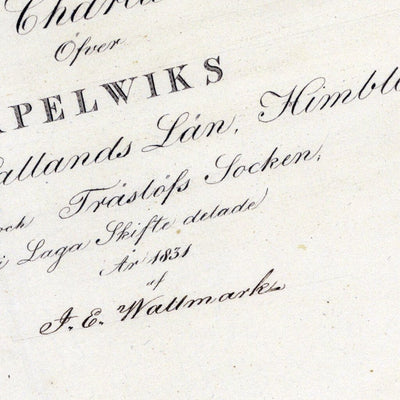 Charta
Öfver
APELWIKS
Hallands Län, Himble
och Träslöfs Socken,
i Laga Skifte delade
År 1831
af
J. E. Wallmark